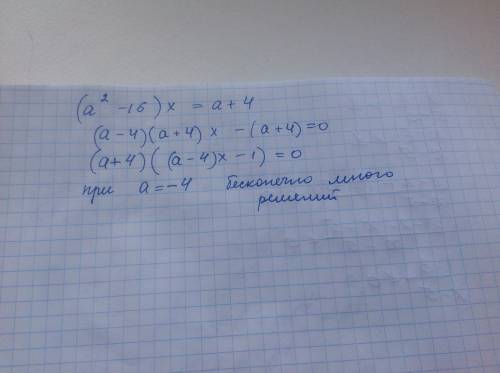 (a² -16) x = a + 4
(a-4)(a+4) x - (a+4) = 0
(a+4) ( (a-4)x - 1) = 0
при a = -4 бесконечно много
решений